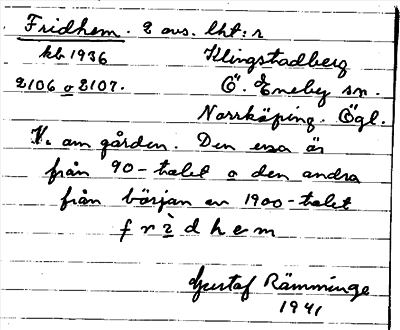 Fridhem. 2 avs. lht:r
kb 1936 Klingstadberg
2106 o 2107. Ö. Eneby sn.
Norrköping. Ögl.
N. om gården. Den ena är
från 90-talet o den andra
från början av 1900-talet
f r ì d h e m
Gustaf Rämminge
1941